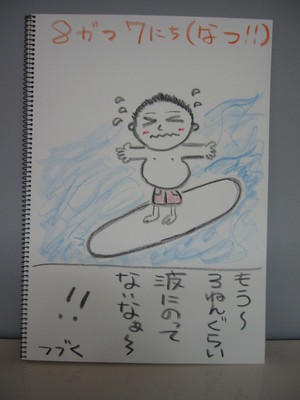 8がつ7にち(なつ!!)
もう〜
3ねんぐらい
波にのって
ないなぁ〜
!!
つづく